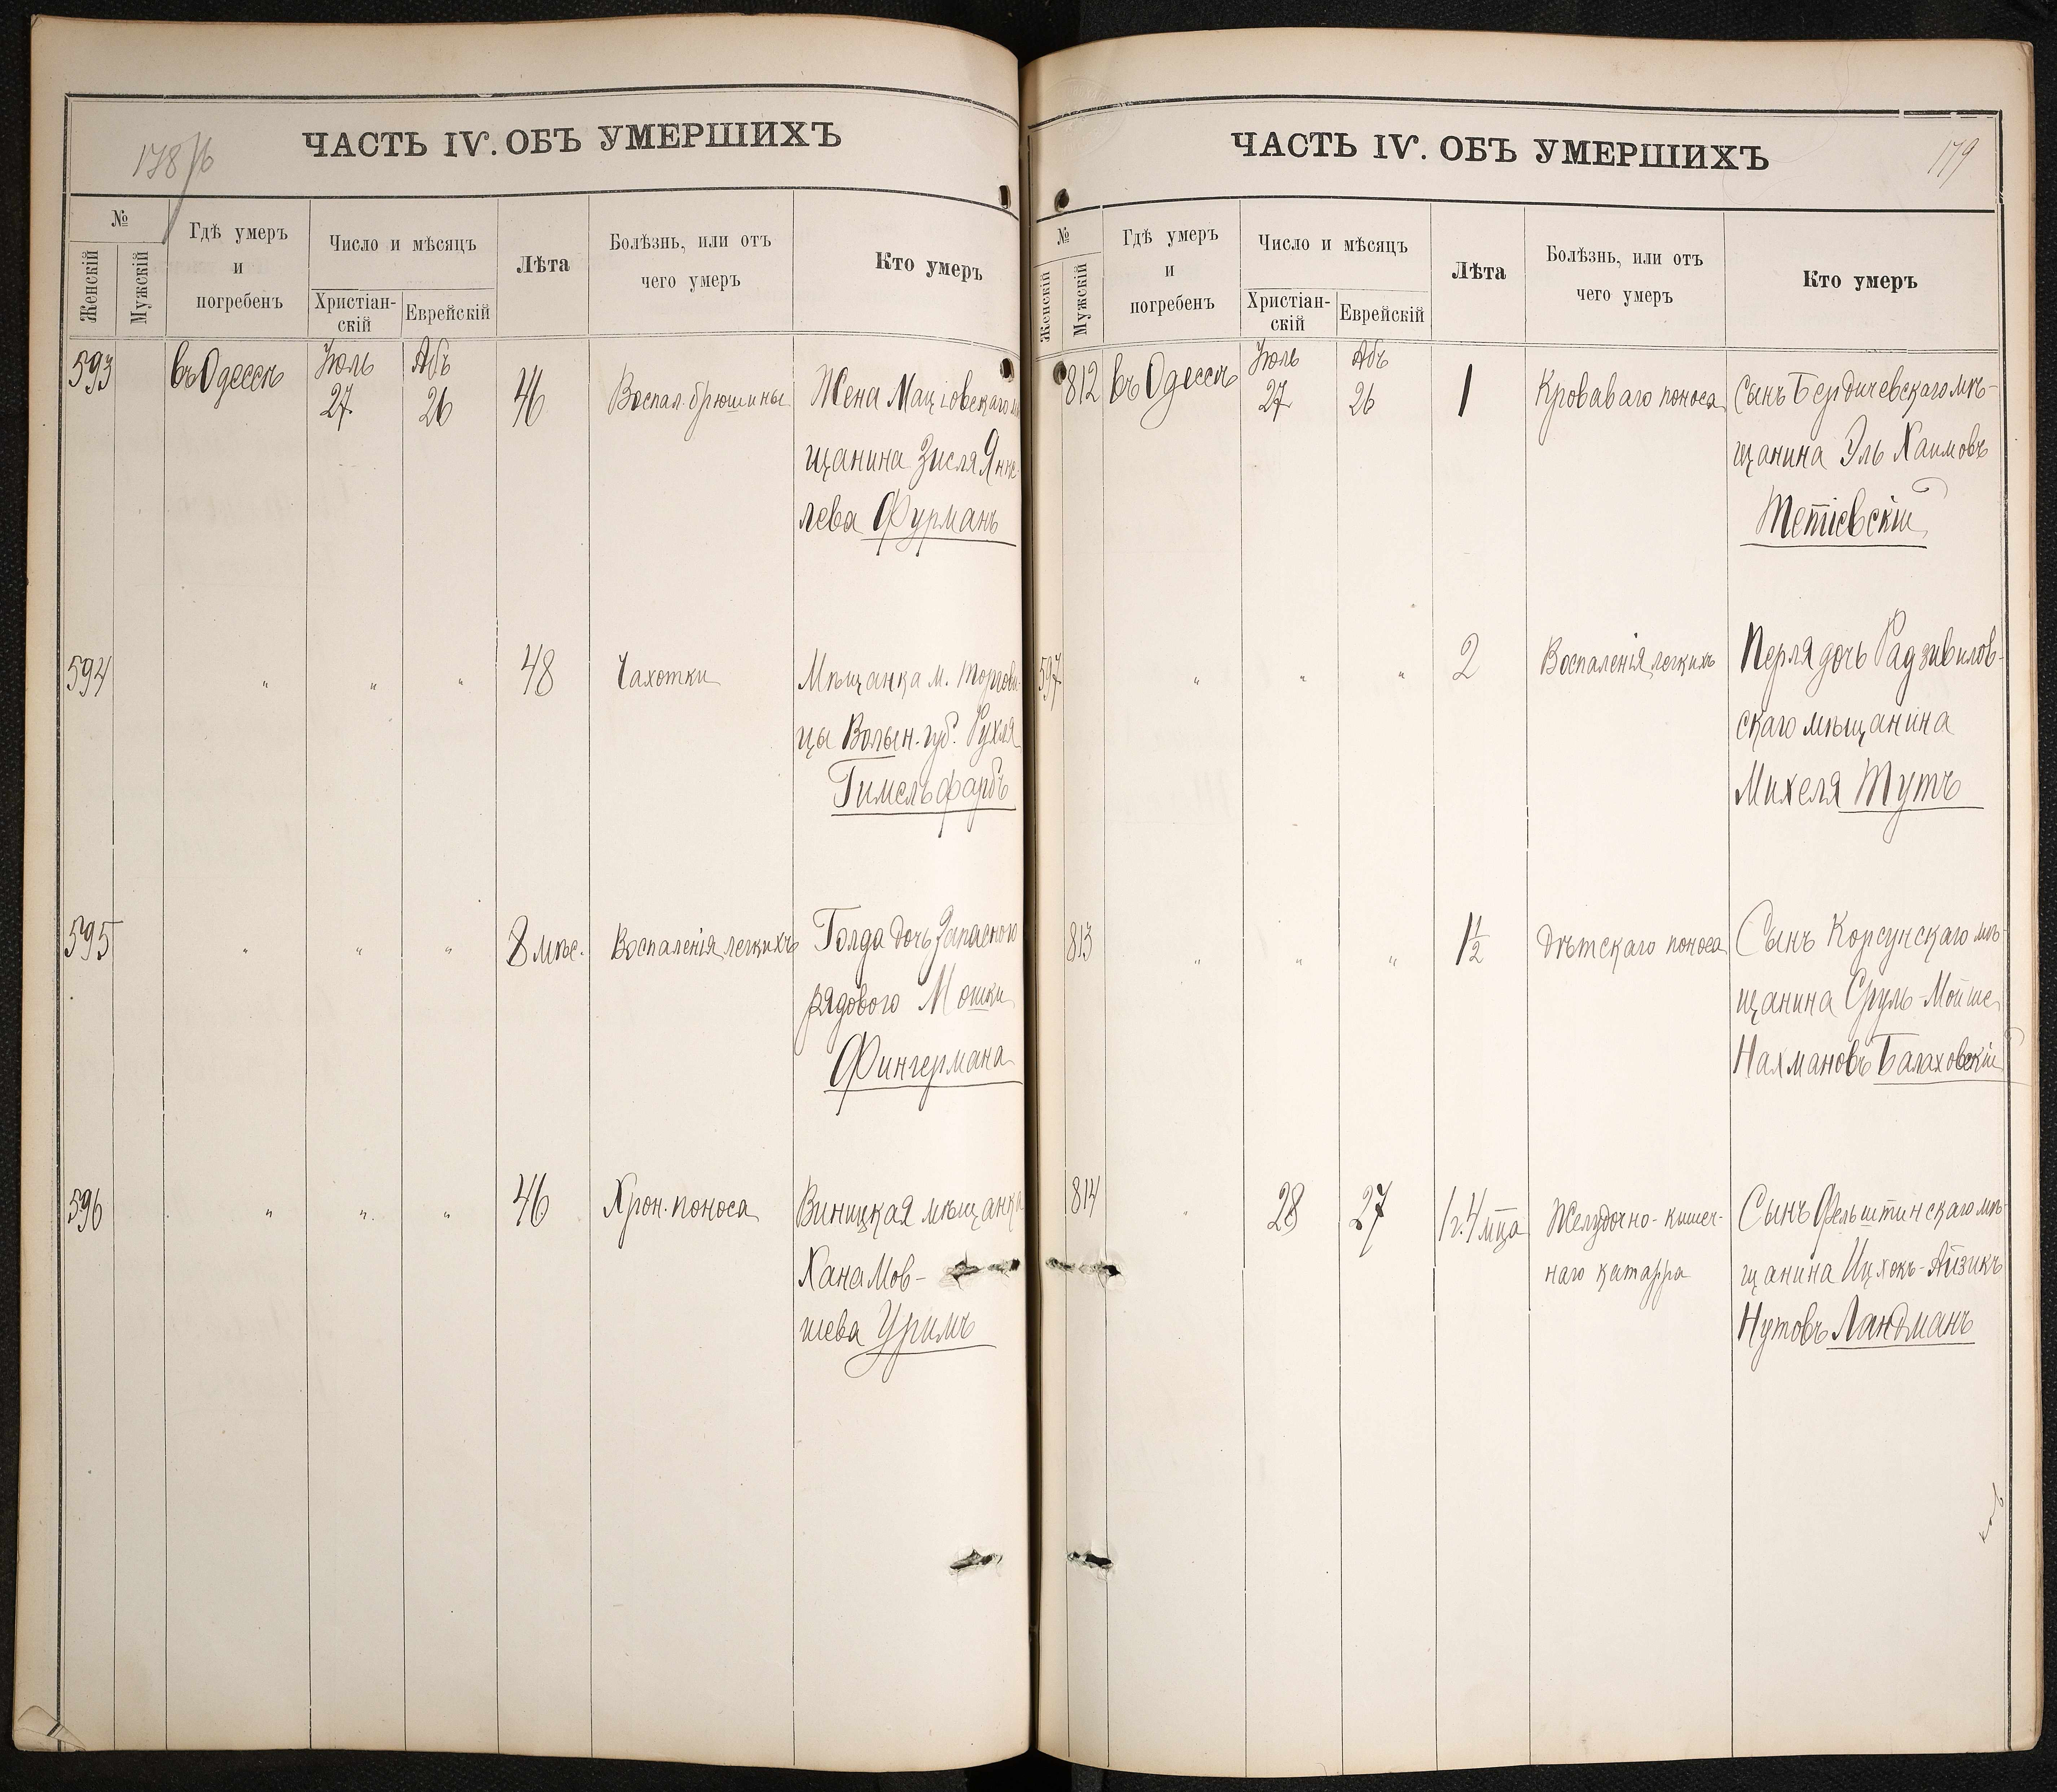 178/б
ЧАСТЬ IV. ОБЪ УМЕРШИХЪ
№
Женскій
Мужскій
Гдѣ умеръ
и
погребенъ
Число и мѣсяцъ
Христіан-
скій
Еврейскій
Лѣта
Болѣзнь, или отъ
чего умеръ
Кто умеръ
593 въ Одессѣ Іюль 27 Абъ 26 46 Воспал. брюшины Жена Маціовскаго мѣ
щанина Зисля Янке-
лева Фурманъ
594 " " " 48 Чахотки Мѣщанка м. Торгови-
цы Волын. губ. Рухля
Гимельфарбъ
595 " " " 8 мѣс. Воспаленія легкихъ Голда дочь Запасного
рядового Мошки
Фингермана
596 " " " 46 Хрон. поноса Виницкая мѣщанка
Хана Мов-
шева Уримъ
ЧАСТЬ IV. ОБЪ УМЕРШИХЪ
179
№
Женскій
Мужскій
Гдѣ умеръ
и
погребенъ
Число и мѣсяцъ
Христіан-
скій
Еврейскій
Лѣта
Болѣзнь, или отъ
чего умеръ
Кто умеръ
812 въ Одессѣ Іюль 27 Абъ 26 1 Кроваваго поноса Сынъ Бердичевскаго мѣ-
щанина Эль Хаимовъ
Тетіевскій
597 " " " 2 Воспаленія легкихъ Перля дочь Радзивилов-
скаго мѣщанина
Михеля Тутъ
813 " " " 1½ Дѣтскаго поноса Сынъ Корсунскаго мѣ-
щанина Сруль-Мойше
Нахмановъ Балаховскій
814 " 28 27 1 г. 4 мца Желудочно-кишеч- Сынъ Фельштинскаго мѣ-
наго катарра щанина Ицхокъ-Айзикъ
Нутовъ Ландманъ